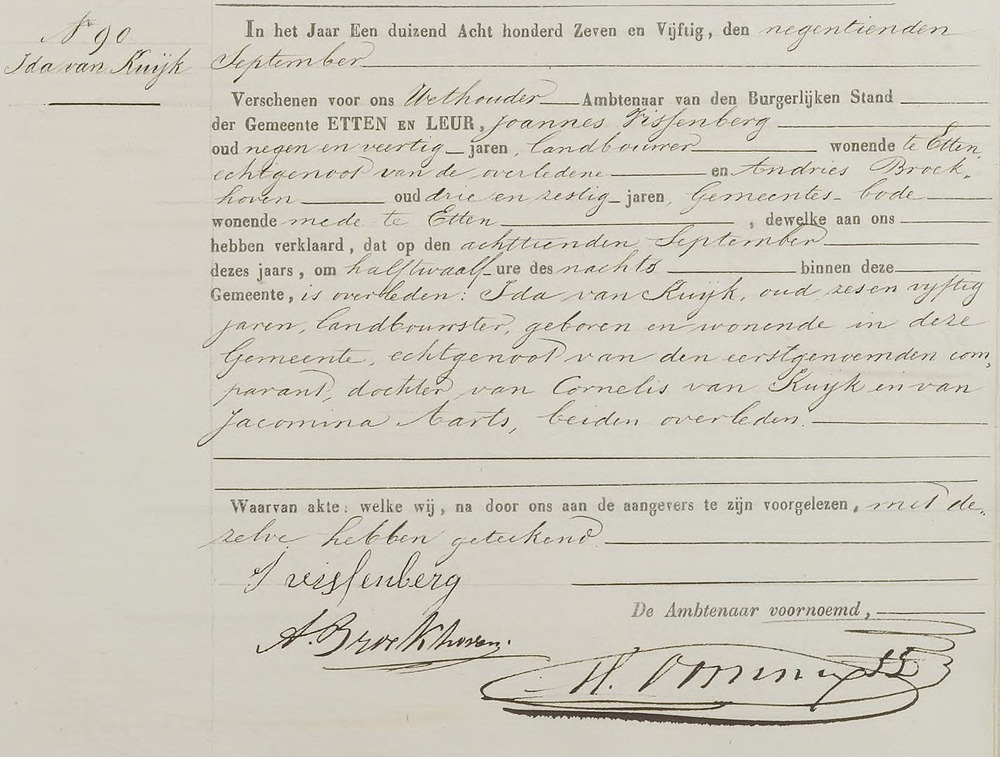 No 90
Ida van Kuijk
In het Jaar Een duizend Acht honderd Zeven en Vijftig, den negentienden
September
Verschenen voor ons Wethouder Ambtenaar van den Burgerlijken Stand
der Gemeente ETTEN EN LEUR, Joannes Vissenberg
oud negen en veertig jaren, landbouwer wonende te Etten,
echtgenoot van de overledene en Andries Broek-
hoven oud drie en zestig jaren, Gemeentes-bode
wonende mede te Etten, dewelke aan ons
hebben verklaard, dat op den achttienden September
dezes jaars, om half twaalf ure des nachts binnen deze
Gemeente, is overleden: Ida van Kuijk, oud zes en vyftig
jaren, landbouwster, geboren en wonende in deze
Gemeente, echtgenoot van den eerstgenoemden com,
parant, dochter van Cornelis van Kuijk en van
Jacomina Aarts, beiden overleden.
Waarvan akte: welke wij, na door ons aan de aangevers te zijn voorgelezen, met de-
zelve hebben geteekend
J vissenberg
De Ambtenaar voornoemd,
A. Broekhoven.